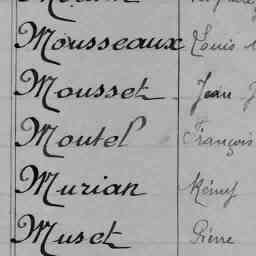 Mousseaux Louis
Mousset Jean J
Moutel François
Murian Rémy
Muset Pierre